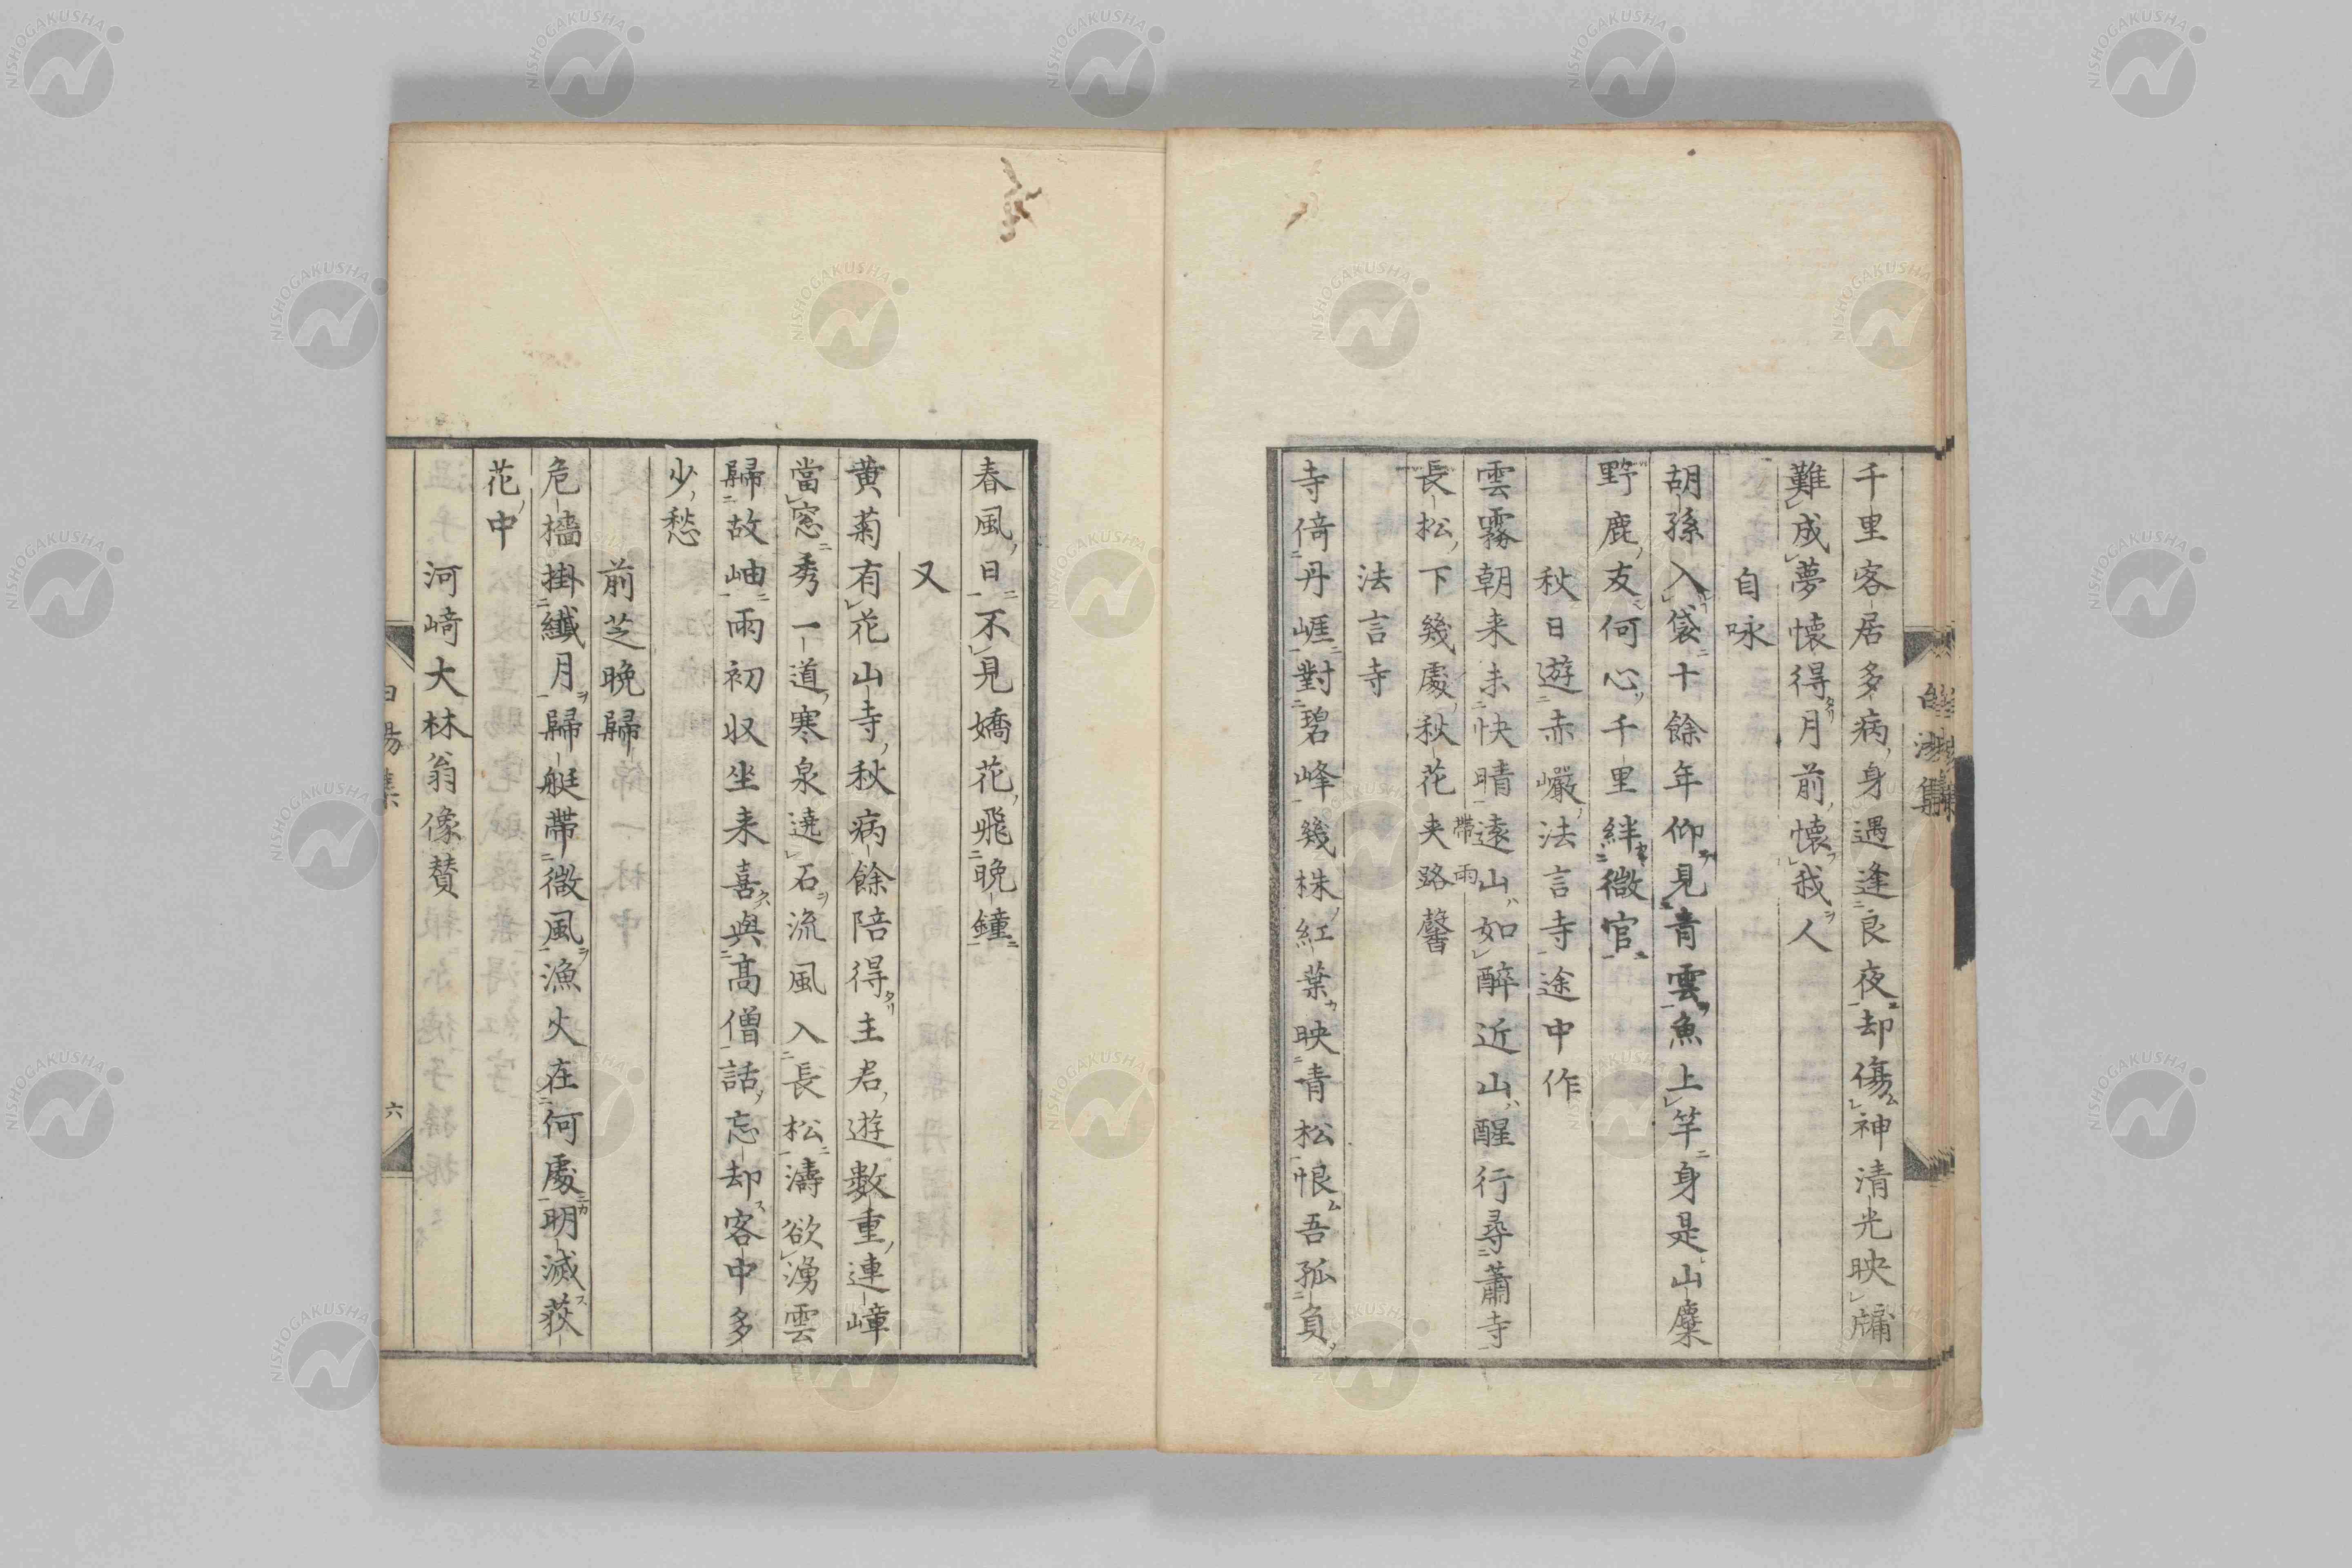 千里客居多病身遇逢良夜却傷神清光映牖
難成夢懷得月前懷我人
自咏
胡孫入袋十餘年仰見青雲魚上竿身是山麋
野鹿友何心千里絆微官
秋日遊赤巗法言寺途中作
雲霧朝来未快晴遠山如醉近山醒行尋蕭寺
帶雨
長松下幾處秋花夾路馨
法言寺
寺倚丹崕對碧峰幾株紅葉映青松恨吾孤負
春風日不見嬌花飛晩鐘
又
黄菊有花山寺秋病餘陪得主君遊數重連嶂
當窓秀一道寒泉遶石流風入長松濤欲湧雲
歸故岫雨初収坐来喜與高僧話忘却客中多
少愁
前芝晩歸
危檣掛纖月歸艇帶微風漁火在何處明滅荻
花中
河﨑大林翁像賛
六
NISHOGAKUSHA